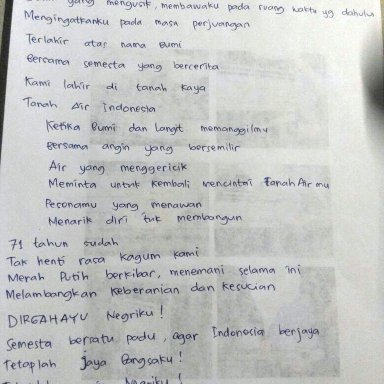 yang mengusik, membawaku pada ruang waktu yg dahulu
Mengingatkanku pada masa perjuangan
Terlahir atas nama Bumi
Bersama semesta yang bercerita
Kami lahir di tanah kaya
Tanah Air Indonesia
Ketika Bumi dan langit memanggilmu
Bersama angin yang bersemilir
Air yang menggericik
Meminta untuk kembali mencintai Tanah Air mu
Pesonamu yang menawan
Menarik diri tuk membangun
71 tahun sudah
Tak henti rasa kagum kami
Merah Putih berkibar, menemani selama ini
Melambangkan keberanian dan kesucian
DIRGAHAYU Negriku!
Semesta bersatu padu, agar Indonesia berjaya
Tetaplah jaya Bangsaku!
Negriku!